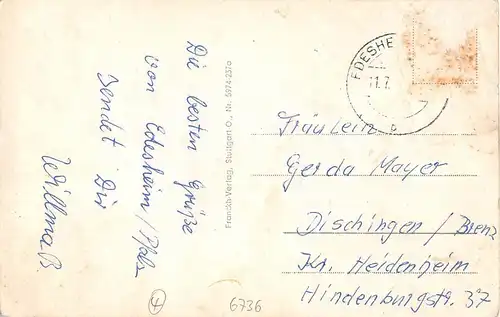 Die besten Grüße
von Edesheim/Pfalz
sendet Dir
Willma B.
Franckh-Verlag, Stuttgart O., Nr. 5974-237a
EDESHE
11.7.
Fräulein
Gerda Mayer
Dischingen / Brenz
Kr. Heidenheim
Hindenburgstr. 37
6736